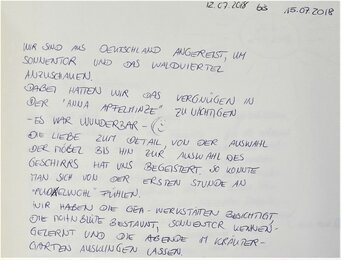 12.07.2018 bis 15.07.2018
WIR SIND AUS DEUTSCHLAND ANGEREIST, UM
SONNENTOR UND DAS WALDVIERTEL
ANZUSCHAUEN.
DABEI HATTEN WIR DAS VERGNÜGEN IN
DER "ANNA APFELMINZE" ZU NÄCHTIGEN
- ES WAR WUNDERBAR -
DIE LIEBE ZUM DETAIL, VON DER AUSWAHL
DER MÖBEL BIS HIN ZUR AUSWAHL DES
GESCHIRRS HAT UNS BEGEISTERT. SO KONNTE
MAN SICH VON DER ERSTEN STUNDE AN
FÜHLEN.
WIR HABEN DIE GEA-WERKSTÄTTEN BESICHTIGT
DIE MOHNBLÜTE BESTAUNT, SONNENTOR KENNEN-
GELERNT UND DIE ABENDE IM KRÄUTER-
GARTEN AUSKLINGEN LASSEN.